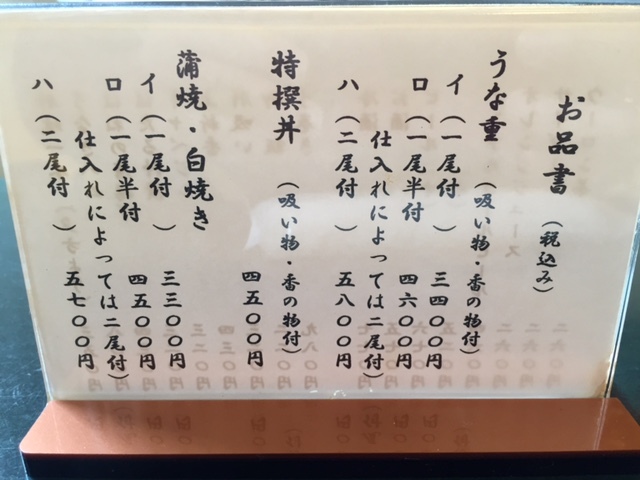 お品書（税込み）
うな重（吸い物・香の物付）
イ（一尾付）三四〇〇円
ロ（一尾半付 四六〇〇円
仕入れによっては二尾付）
ハ（二尾付）五八〇〇円
特撰丼（吸い物・香の物付）
四五〇〇円
蒲焼・白焼き
イ（一尾付）三三〇〇円
ロ（一尾半付 四五〇〇円
仕入れによっては二尾付）
ハ（二尾付）五七〇〇円